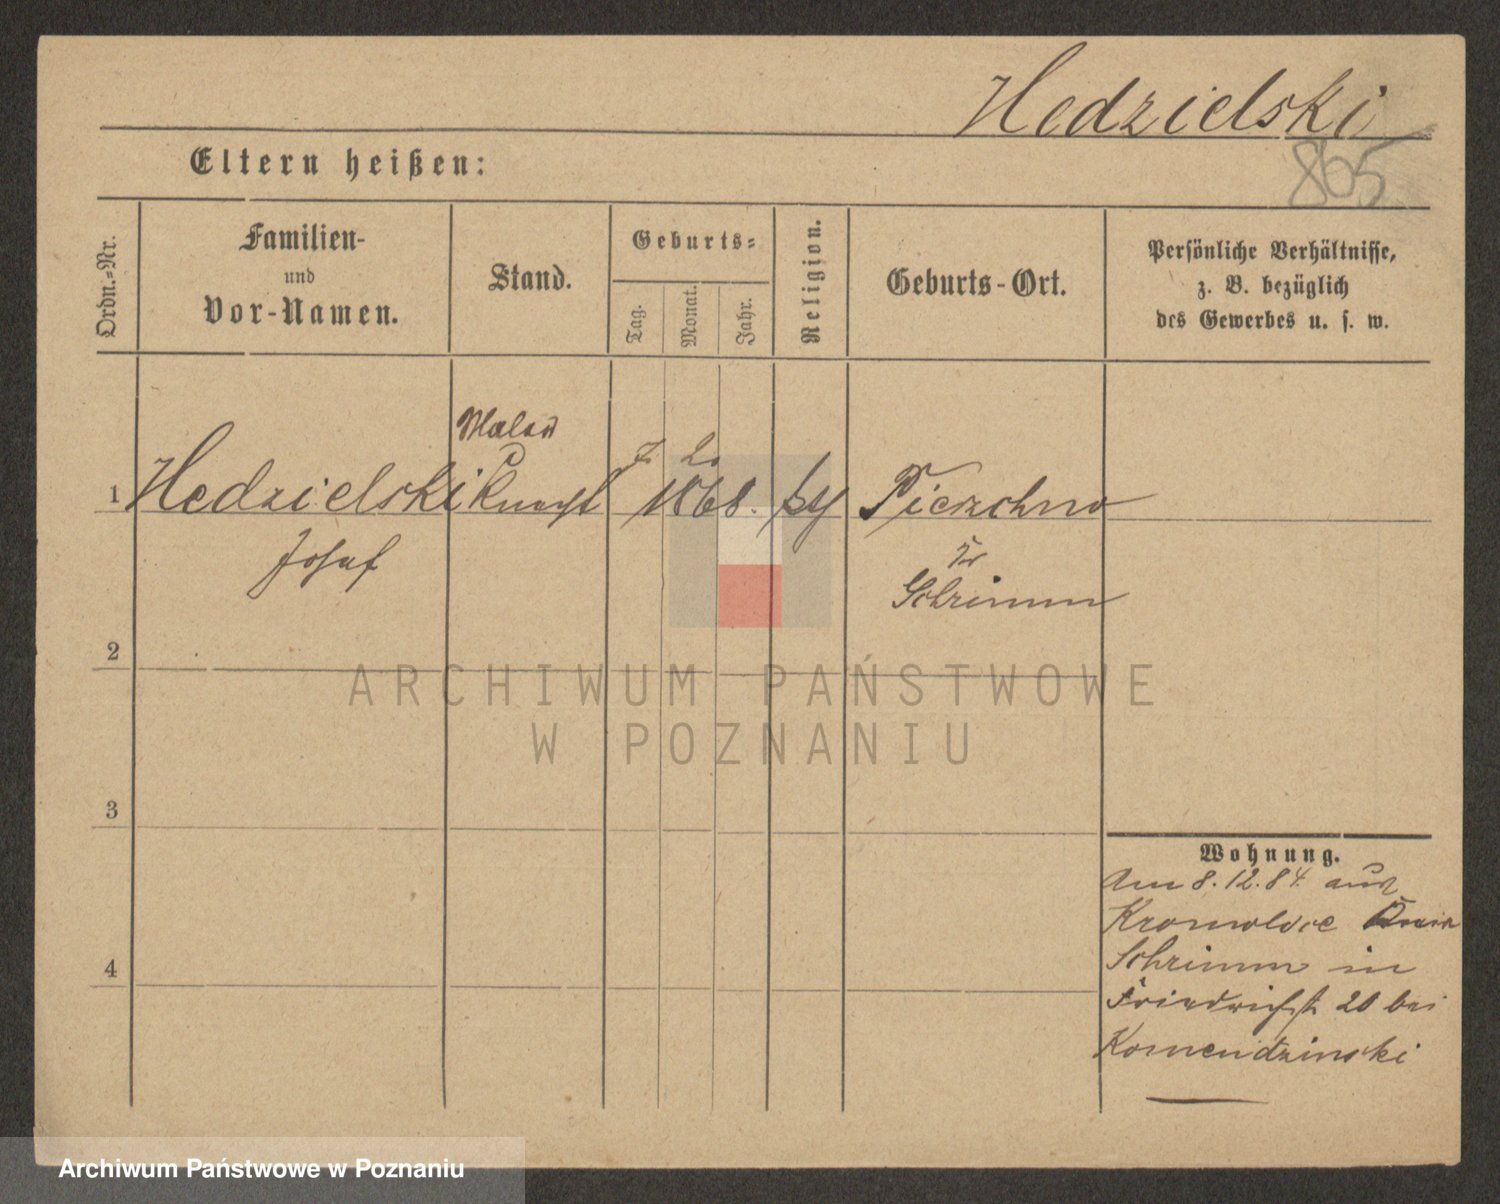 Hedzielski
865
Eltern heißen:
Ordn.-Nr.
Familien-
und
Vor-Namen.
Stand.
Geburts-
Tag.
Monat.
Jahr.
Religion.
Geburts-Ort.
Persönliche Verhältnisse,
z. B. bezüglich
des Gewerbes u. s. w.
Maler
1 Hedzielski Knecht 7. 2. 1868. Pierzchno
Josef
Kr
Schrimm
2
3
4
Wohnung.
Am 8.12.84. aus
Kromolice Kreis
Schrimm in
Friedrichst 20 bei
Komendzinski
ARCHIWUM PAŃSTWOWE
W POZNANIU
Archiwum Państwowe w Poznaniu